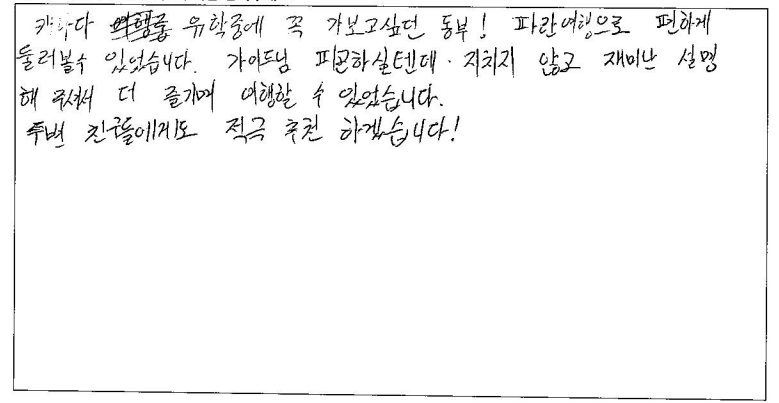 캐나다 유학중에 꼭 가보고싶던 동부! 파란여행으로 편하게
둘러볼수 있었습니다. 가이드님 피곤하실텐데. 지치지 않고 재미난 설명
해 주셔서 더 즐기며 여행할 수 있었습니다.
주변 친구들에게도 적극 추천 하겠습니다!